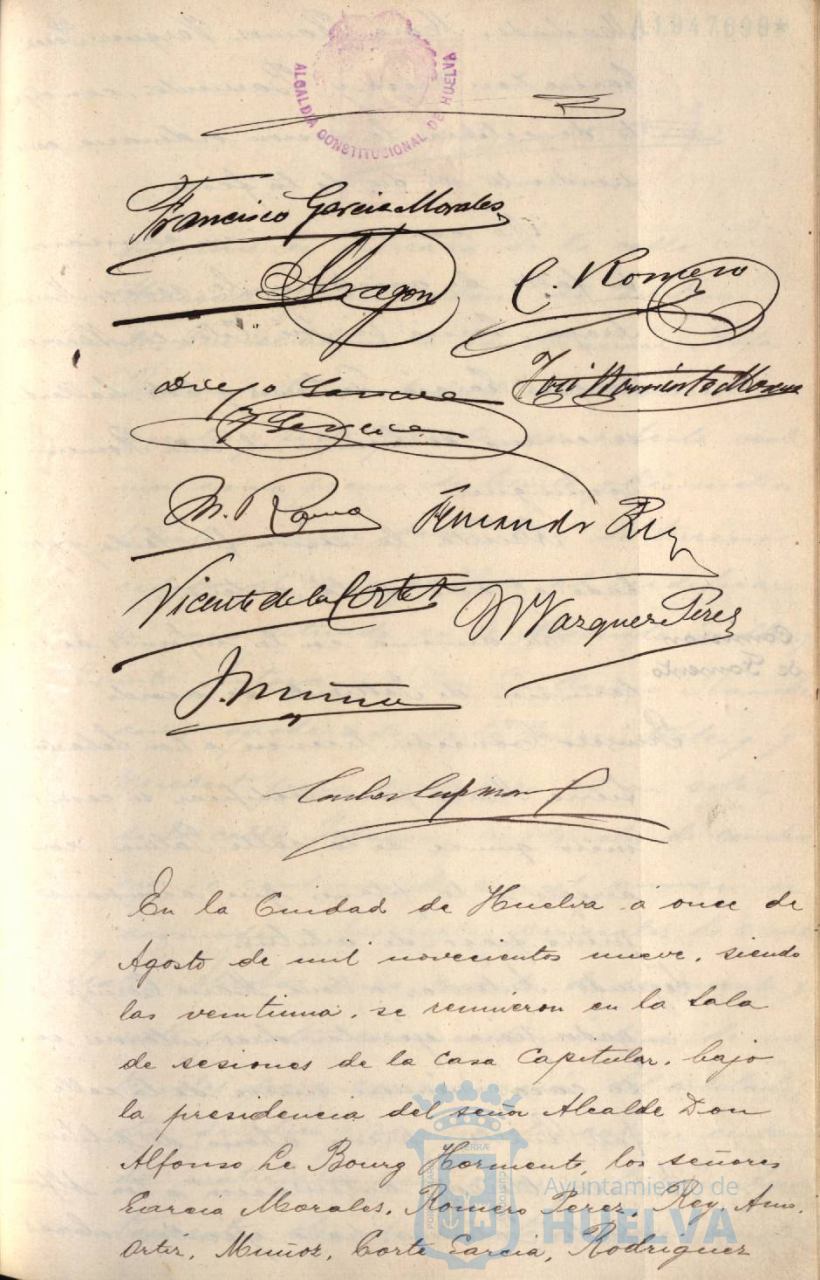 ALCALDÍA CONSTITUCIONAL DE HUELVA
Francisco Garcia Morales
Aragon
C. Romero
Diego Garcia
J Garcia
José Morales
M. Roma
Fernando Rey
Vicente de la Corte
M Vazquez Perez
J. Muñoz
Carlos
Comision
de Fomento
En la Ciudad de Huelva a once de
Agosto de mil novecientos nueve, siendo
las veintiuna, se reunieron en la Sala
de sesiones de la Casa Capitular, bajo
la presidencia del señor Alcalde Don
Alfonso Le Bourg, los señores
Garcia Morales, Romero Perez, Rey, Amo,
Ortiz, Muñoz, Corte Garcia, Rodriguez
Ayuntamiento de
HUELVA